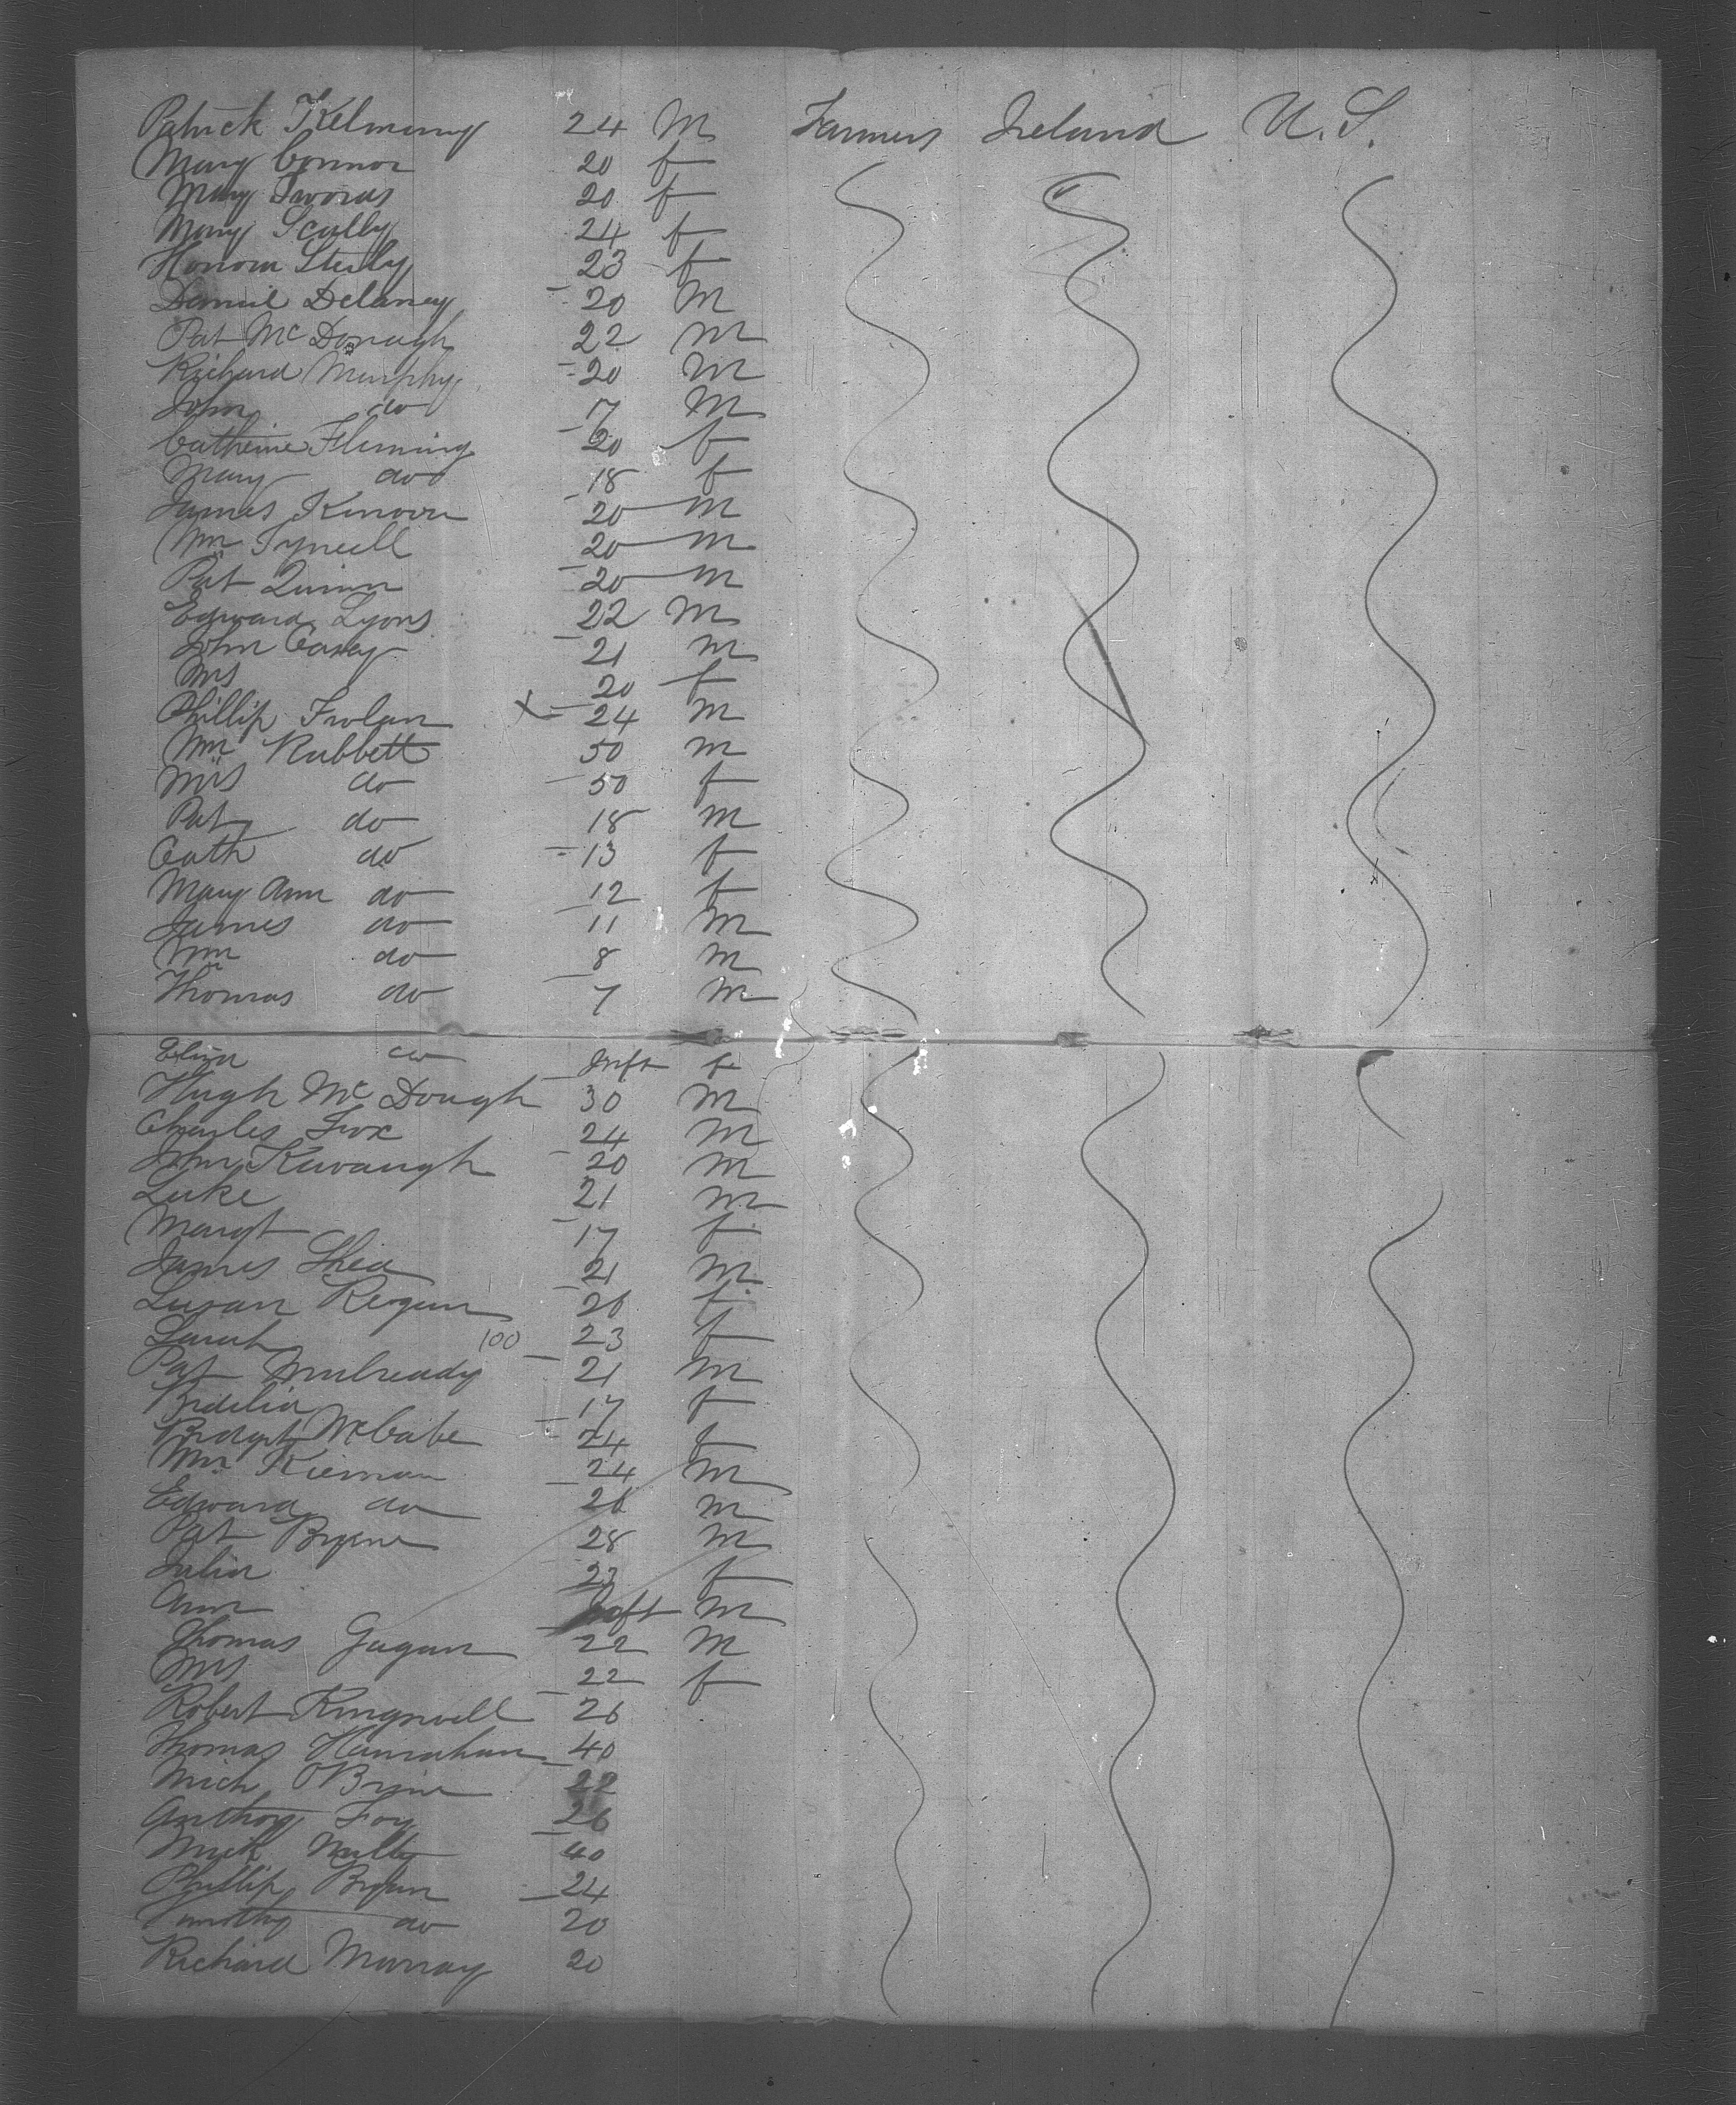 Patrick Kelmurry 24 M Farmers Ireland U.S.
Mary Connor 20 f
Mary 20 f
Mary Scally 24 f
Honora 23 f
Daniel Delaney 20 M
Pat McDonagh 22 M
Richard Murphy 20 M
John do 17 M
Catherine Fleming 20 f
Mary do 18 f
James 20 M
Wm 20 M
Pat Quinn 20 M
Edward Lyons 22 M
John Casey 21 M
Mrs 20 f
Phillip X 24 M
Wm Rabbett 50 M
Mrs do 50 f
Pat do 18 M
Cath do 13 f
Mary Ann do 12 f
James do 11 M
Wm do 8 M
Thomas do 7 M
Eliza do Inft f
Hugh McDough 30 M
Charles Fox 24 M
John Kavaugh 20 M
Luke 21 M
Margt 17 f
James Shea 21 M
Susan Regan 26 f
Sarah 100 23 f
Pat Mulready 21 M
Bedelia 17 f
Bridget McCabe 24 f
Wm Kiernan 24 M
Edward do 26 M
Pat Byrne 28 M
Julia 23 f
Ann Inft M
Thomas Gagan 22 M
Mrs 22 f
Robert Kingwell 26
Thomas Hanrahan 40
Mich O'Brine 22
Anthony Foy 26
Mick Nally 40
Phillip Bryan 24
Timothy do 20
Richard Murray 20